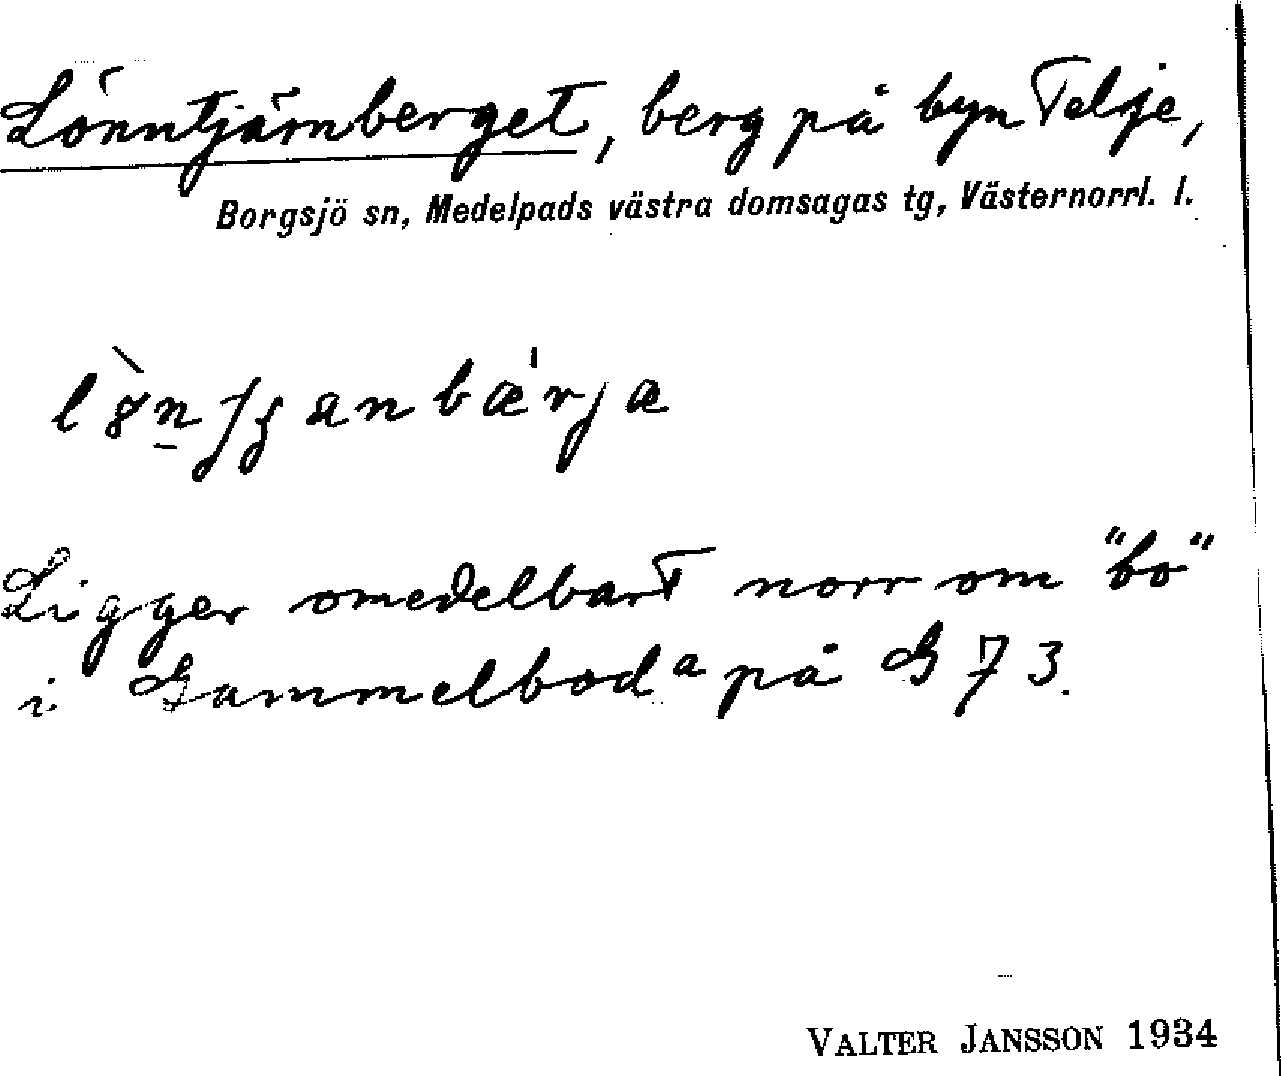 Lönntjärnberget, berg på byn Telje,
Borgsjö sn, Medelpads västra domsagas tg, Västernorrl. l.
Ligger omedelbart norr om "bo"
i Gammelboda på G 73.
VALTER JANSSON 1934